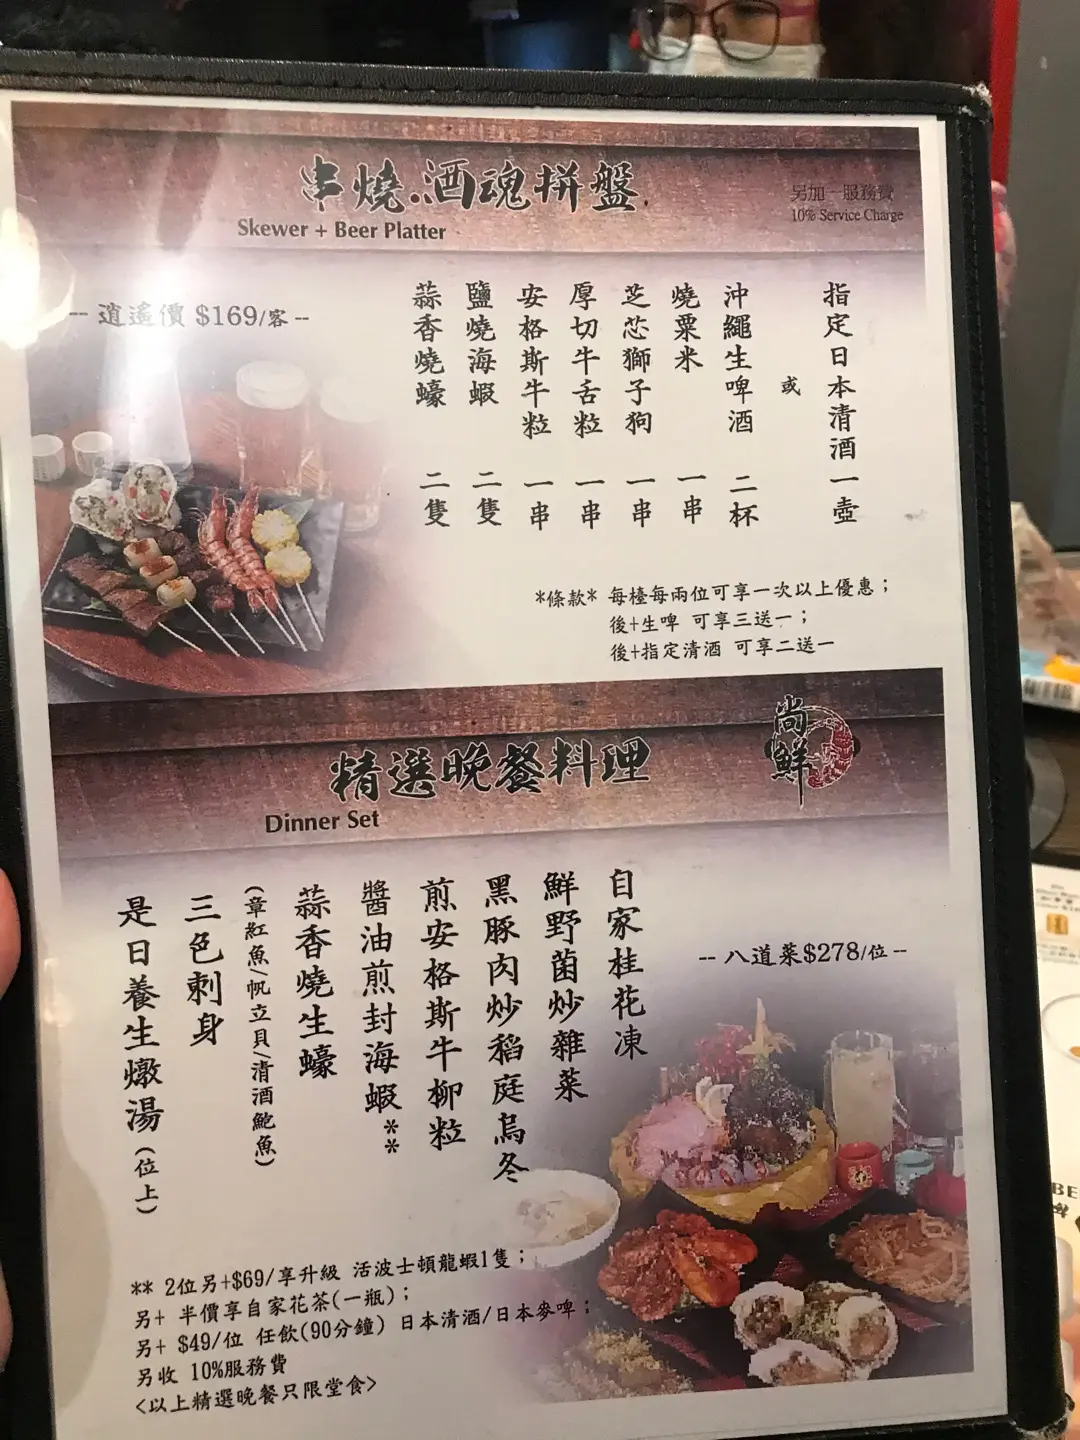 串燒.酒魂拼盤
Skewer + Beer Platter
另加一服務費
10% Service Charge
-- 逍遙價 $169/客 --
蒜香燒蠔 二隻
鹽燒海蝦 二隻
安格斯牛粒 一串
厚切牛舌粒 一串
芝芯獅子狗 一串
燒粟米 一串
沖繩生啤酒 二杯
或
指定日本清酒 一壺
*條款* 每檯每兩位可享一次以上優惠；
後+生啤 可享三送一；
後+指定清酒 可享二送一
尚鮮
精選晚餐料理
Dinner Set
-- 八道菜$278/位 --
是日養生燉湯(位上)
三色刺身
(章紅魚/帆立貝/清酒鮑魚)
蒜香燒生蠔
醬油煎封海蝦**
煎安格斯牛柳粒
黑豚肉炒稻庭烏冬
鮮野菌炒雜菜
自家桂花凍
** 2位另+$69/享升級 活波士頓龍蝦1隻；
另+ 半價享自家花茶(一瓶)；
另+ $49/位 任飲(90分鐘) 日本清酒/日本麥啤；
另收 10%服務費
<以上精選晚餐只限堂食>